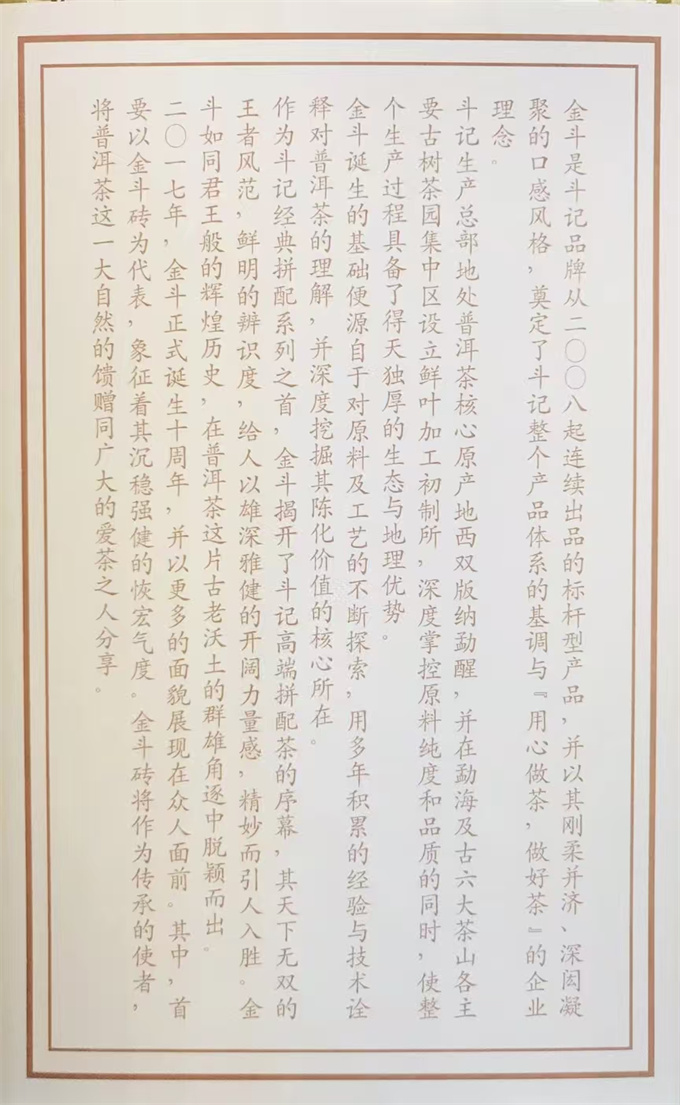 金斗是斗记品牌从二〇〇八起连续出品的标杆型产品，并以其刚柔并济、深闳凝
聚的口感风格，奠定了斗记整个产品体系的基调与『用心做茶，做好茶』的企业
理念。
斗记生产总部地处普洱茶核心原产地西双版纳勐醒，并在勐海及古六大茶山各主
要古树茶园集中区设立鲜叶加工初制所，深度掌控原料纯度和品质的同时，使整
个生产过程具备了得天独厚的生态与地理优势。
金斗诞生的基础便源自于对原料及工艺的不断探索，用多年积累的经验与技术诠
释对普洱茶的理解，并深度挖掘其陈化价值的核心所在。
作为斗记经典拼配系列之首，金斗揭开了斗记高端拼配茶的序幕，其天下无双的
王者风范，鲜明的辨识度，给人以雄深雅健的开阔力量感，精妙而引人入胜。金
斗如同君王般的辉煌历史，在普洱茶这片古老沃土的群雄角逐中脱颖而出。
二〇一七年，金斗正式诞生十周年，并以更多的面貌展现在众人面前。其中，首
要以金斗砖为代表，象征着其沉稳强健的恢宏气度。金斗砖将作为传承的使者，
将普洱茶这一大自然的馈赠同广大的爱茶之人分享。